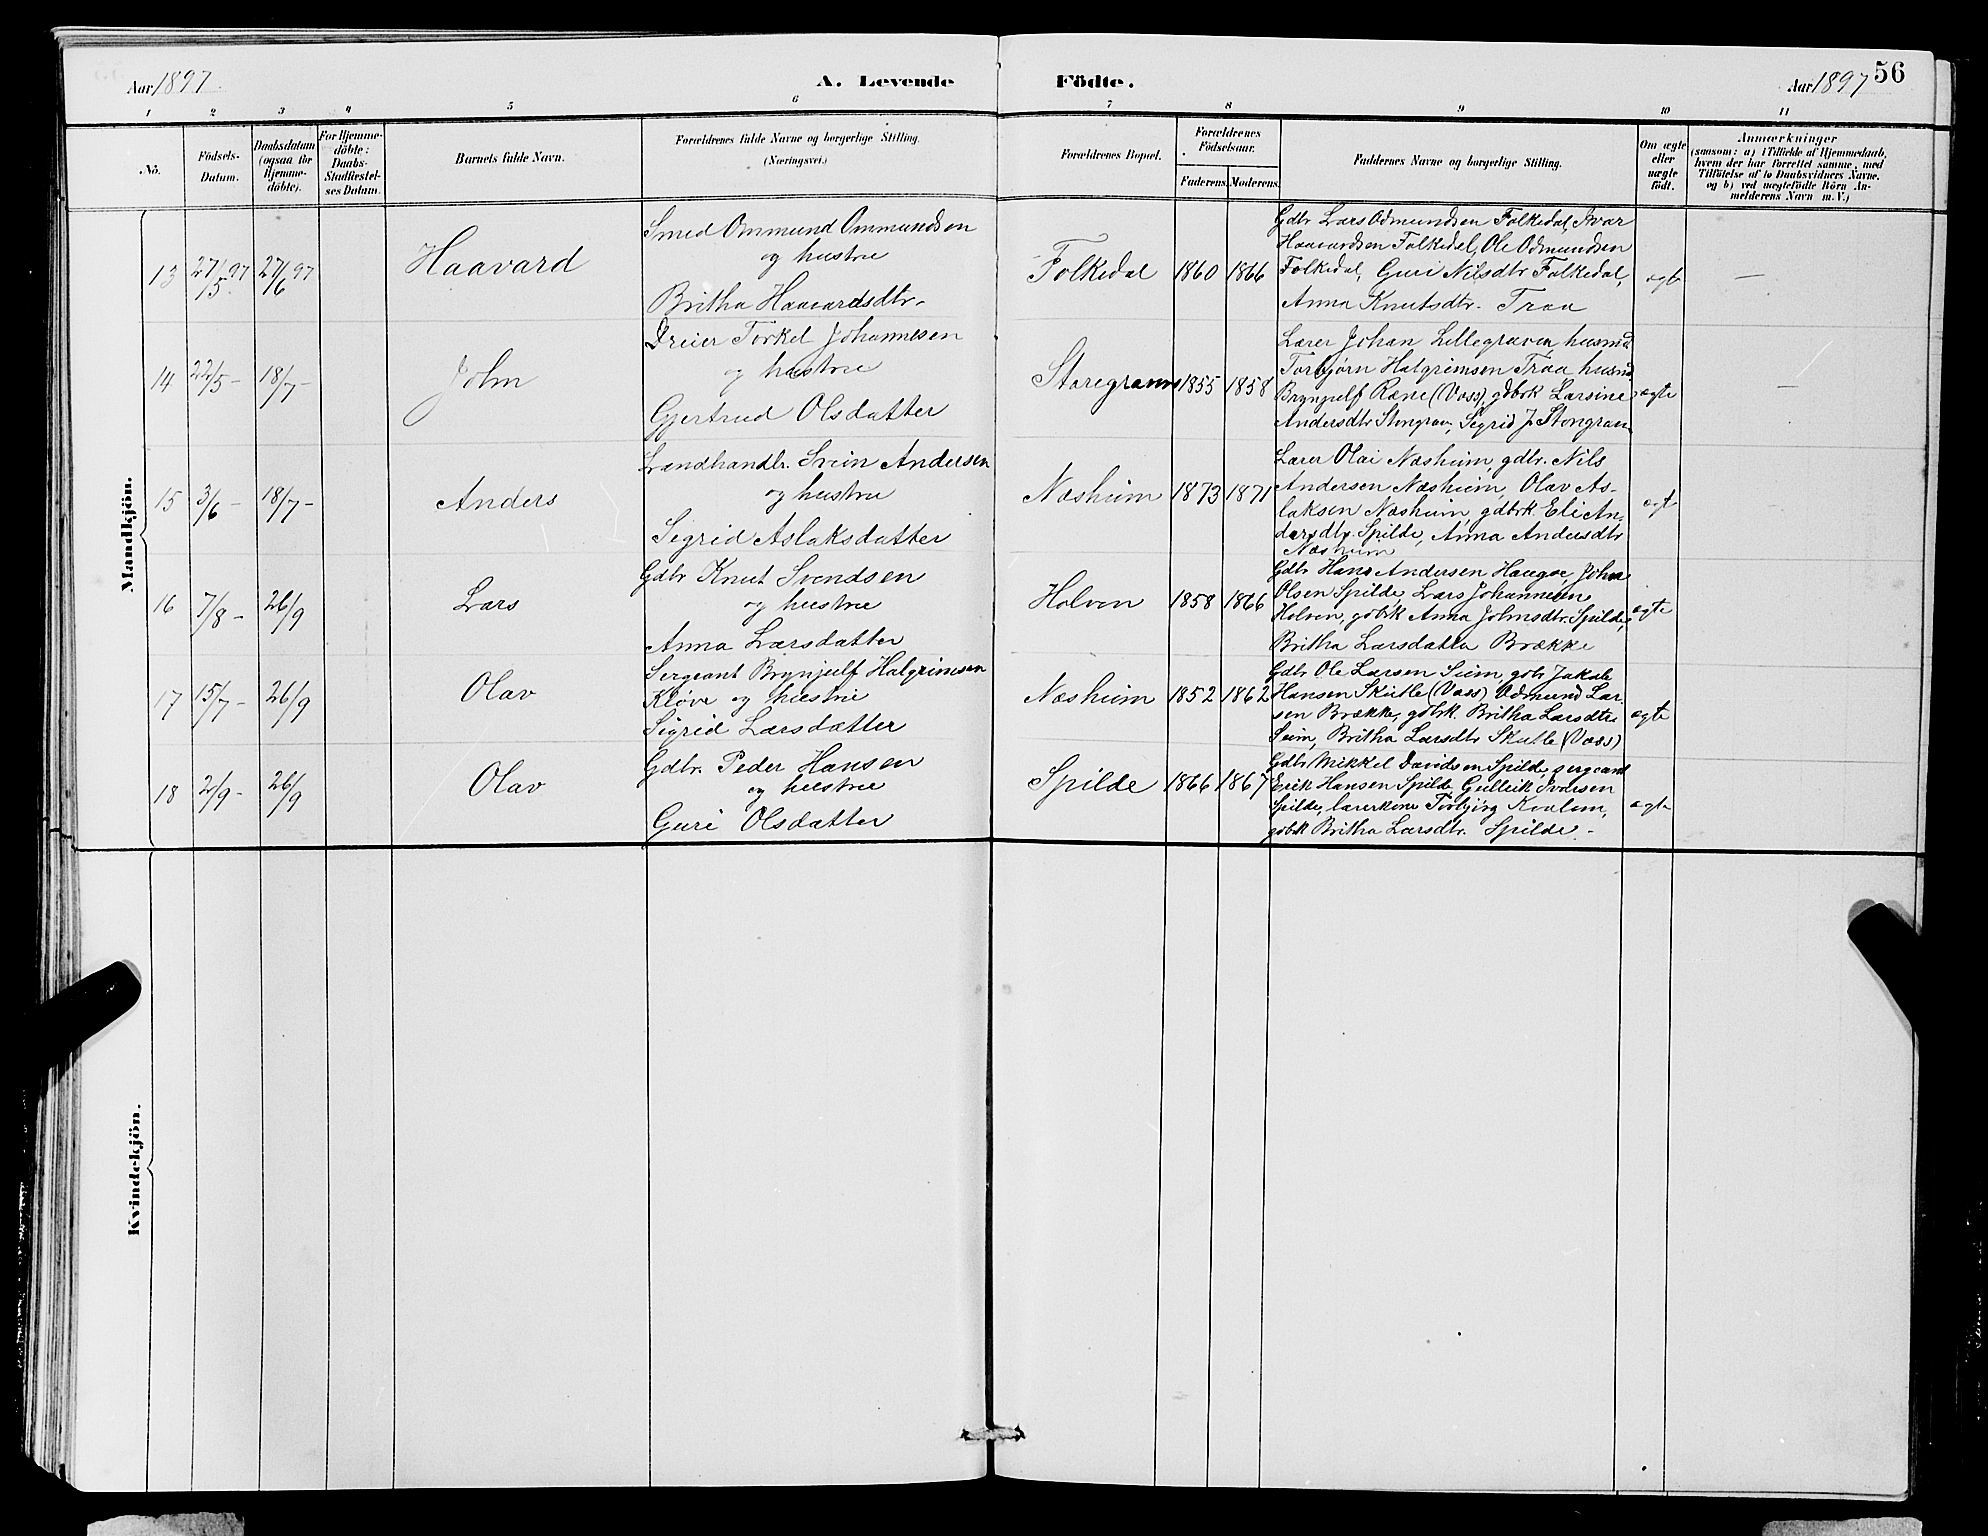 Aar 1897.
A. Levende Födte.
Aar 1897 56
1 2 3 4 5 6 7 8 9 10 11
No.
Födsels-
Datum.
Daabsdatum
(ogsaa for
Hjemme-
döbte).
For Hjemme-
döbte:
Daabs-
Stadfæstel-
ses Datum.
Barnets fulde Navn.
Forældrenes fulde Navne og borgerlige Stilling.
(Næringsvei.)
Forældrenes Bopæl.
Forældrenes
Födselsaar.
Faderens. Moderens.
Faddernes Navne og borgerlige Stilling.
Om ægte
eller
uægte
födt.
Anmærkninger
(saasom: a) i Tilfælde af Hjemmedaab,
hvem der har forrettet samme, med
Tilföielse af to Daabsvidners Navne,
og b) ved uægtefödte Börn An-
melderens Navn m. V.)
Mandkjön.
13 27/5 97 27/6 97 Haavard
Smed Ommund Ommundsen
og hustru
Britha Haavardsdtr.
Folkedal 1860 1866
Gdbr Lars Odmundsen Folkedal, Ivar
Haavardsen Folkedal, Ole Odmundsen
Folkedal, Guri Nilsdtr Folkedal,
Anna Knutsdtr. Traa
ægte —
14 22/5 - 18/7 - John
Dreier Torkel Johannesen
og hustru
Gjertrud Olsdatter
Storegraven 1855 1858
Lærer Johan Lillegraven husmd
Torbjørn Halgrimsen Traa husmd
Brynjulf Rene (Voss), gdbrk Larsine
Andersdtr Storegrav, Sigrid J. Storegraven
ægte —
15 3/6 - 18/7 - Anders
Landhandlr. Svein Andersen
og hustru
Sigrid Aslaksdatter
Næsheim 1873 1871
Lærer Olai Næsheim, gdbr. Nils
Andersen Næsheim, Olav As-
laksen Næsheim, gdbrk. Eli An-
dersdtr. Spilde, Anna Andersdtr
Næsheim
ægt
16 7/8 - 26/9 Lars
Gdbr Knut Svendsen
og hustru
Anna Larsdatter
Holven 1858 1866
Gdbr Hans Andersen Hauge, John
Olsen Spilde, Lars Johannesen
Holven, gdbk Anna Johnsdtr. Spilde,
Britha Larsdatter Brække
ægte
17 15/7 - 26/9 Olav
Sergeant Brynjulf Halgrimsen
Kløve og hustru
Sigrid Larsdatter
Næsheim 1852 1862
Gdbr Ole Larsen Seim, gdb Jakob
Hansen Skutle (Voss) Odmund Lar-
sen Brække, gdbrk. Britha Larsdtr
Seim, Britha Larsdtr Skutle (Voss)
ægte
18 2/9 - 26/9 Olav
Gdbr. Peder Hansen
og hustru
Guri Olsdatter
Spilde 1866 1867
Gdbr Mikkel Davidsen Spilde, sergeant
Erik Hansen Spilde, Gulleik Ivarsen
Spilde, lærerkone Torbjørg Kvalem,
gdbk Britha Larsdtr. Spilde. -
ægte
Kvindekjön.